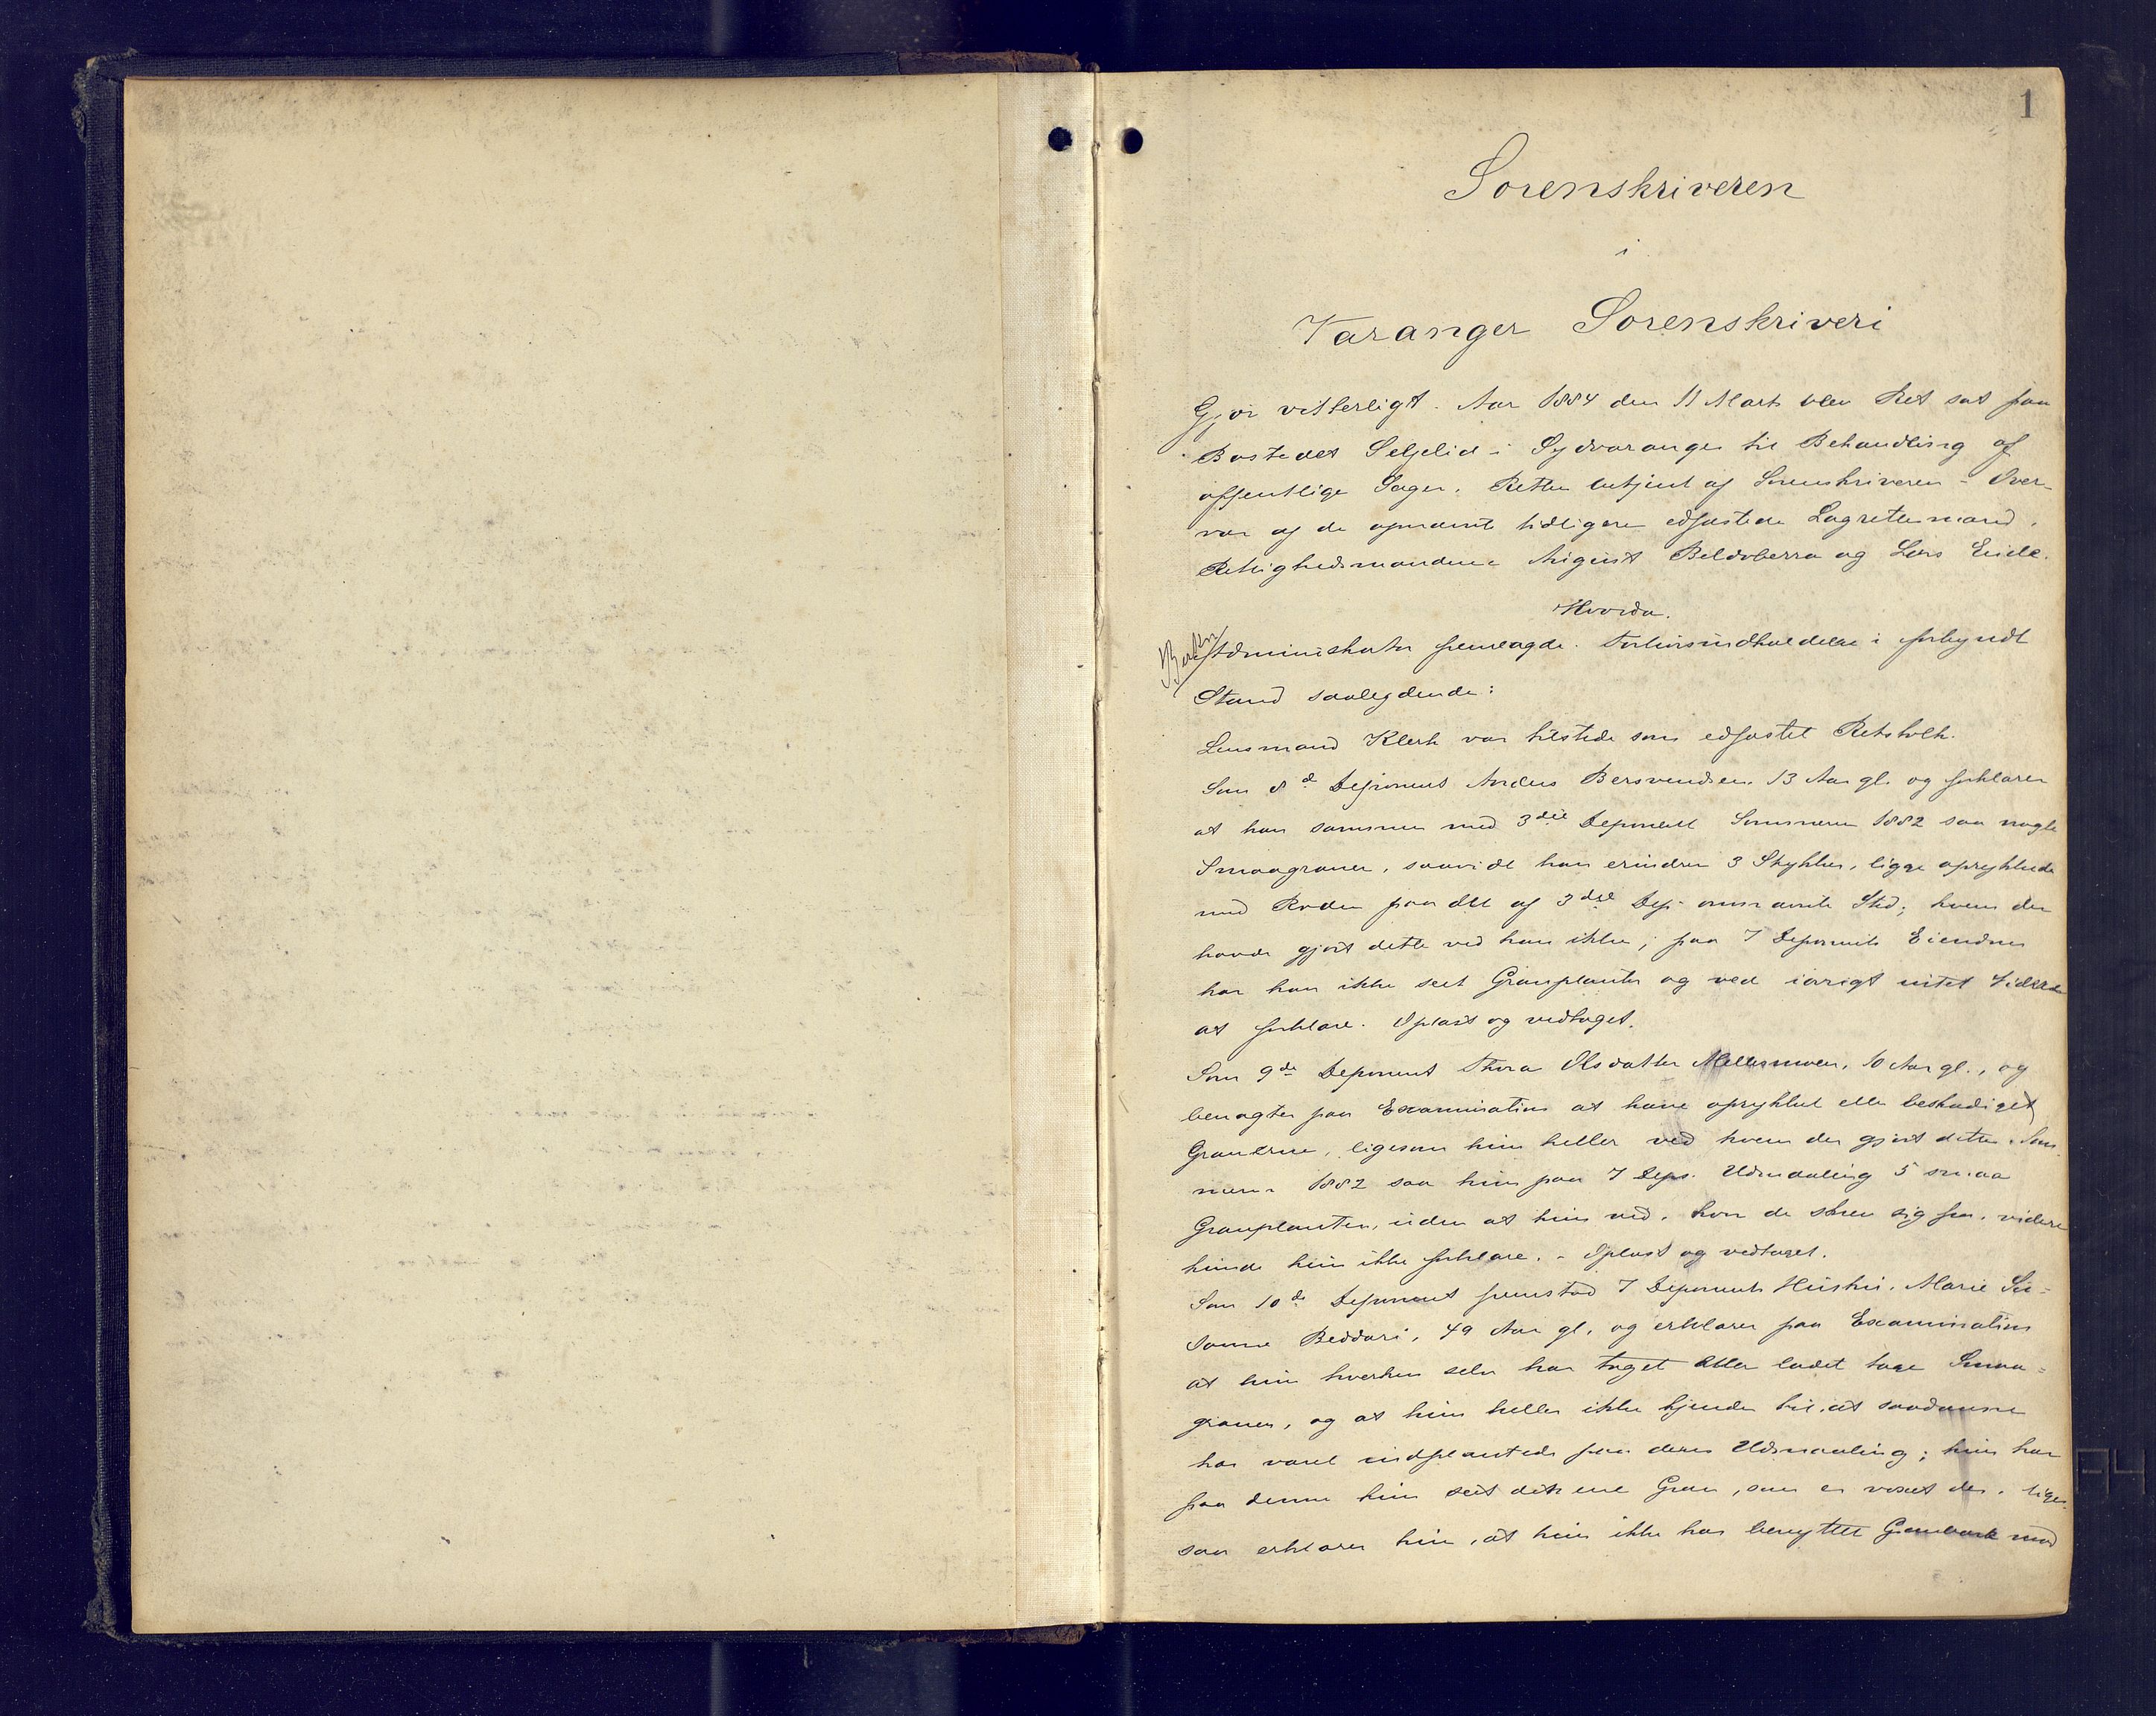 1
Sorenskriveren
i
Varanger Sorenskriveri
Gjør vitterligt. Aar 1884 den 11 Marts blev Ret sat paa
Bostedet Seljelid i Sydvaranger til Behandling af
offentlige Sager. Retten betjent af Sorenskriveren - Over-
var af de opnævnte tidligere edfæstede Lagrettemænd.
Rettighedsmændene August Beldoberra og Lars Eide.
Hvorda.
Administrator fremlagde. Forhørsindkaldelse i forkyndt
Stand saalydende:
Lensmand Klerk var tilstede som edfæstet Retstolk.
Som 8d Deponent Anders Bersvendsen 13 Aar gl. og forklarer
at han sammen med 3die Deponent Sommeren 1882 saa nogle
Smaagraner, saavidt han erindrer 3 Stykker, ligge oprykkede
med Roden paa det af 3die Dep. omnævnte Sted; hvem der
havde gjort dette ved han ikke; paa 7 Deponents Eiendom
har han ikke seet Granplanter og ved iøvrigt intet videre
at forklare. Oplæst og vedtaget.
Som 9de Deponent Thora Olsdatter Mellemmoen, 10 Aar gl., og
benegter paa Examination at have oprykket eller beskadiget
Granerne, ligesom hun heller ved hvem der gjort dette. Som
meren 1882 saa hun paa 7 Deps. Udmaaling 5 smaa
Granplanter, uden at hun ved, hvor de skrev sig fra. videre
kunde hun ikke forklare. - Oplæst og vedtaget.
Som 10de Deponent fremstod 7 Deponents Hustru, Marie Su-
sanne Beddari, 49 Aar gl. og erklærer paa Examination
at hun hverken selv har taget eller ladet tage Smaa-
graner, og at hun heller ikke kjender til, at saadanne
har været indplantede paa deres Udmaaling; hun har
paa denne kun seet den ene Gran, som er voxet der. lige-
saa erklærer hun, at hun ikke har benyttet Granbark med